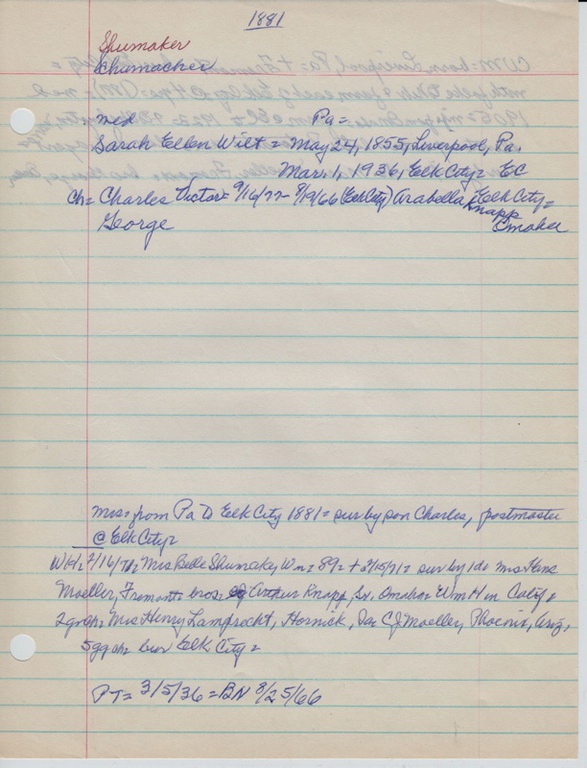 1881
Shumaker
Schumacher
med Pa=
Sarah Ellen Wilt = May 24, 1855, Liverpool, Pa.
Mar. 1, 1936, Elk City = EC
Ch= Charles Victor = 9/16/77 - 8/19/66 (Elk City) Arabella Knapp Elk City =
George Omaha
Miss from Pa to Elk City 1881 = sur by son Charles, postmaster
@ Elk City =
WH= 2/16/71= Mrs Belle Shumaker, Wn = 89 = + 2/15/71 = sur by 1 da Mrs Hans
Moeller, Fremont = bros Arthur Knapp, Sr. Omaha = Wm H in Calif =
2 grch = Mrs Henry Lamprecht, Hornick, Ia = CJ Moeller, Phoenix, Ariz =
5 ggch = bur Elk City =
PT = 3/5/36 = BN 8/25/66